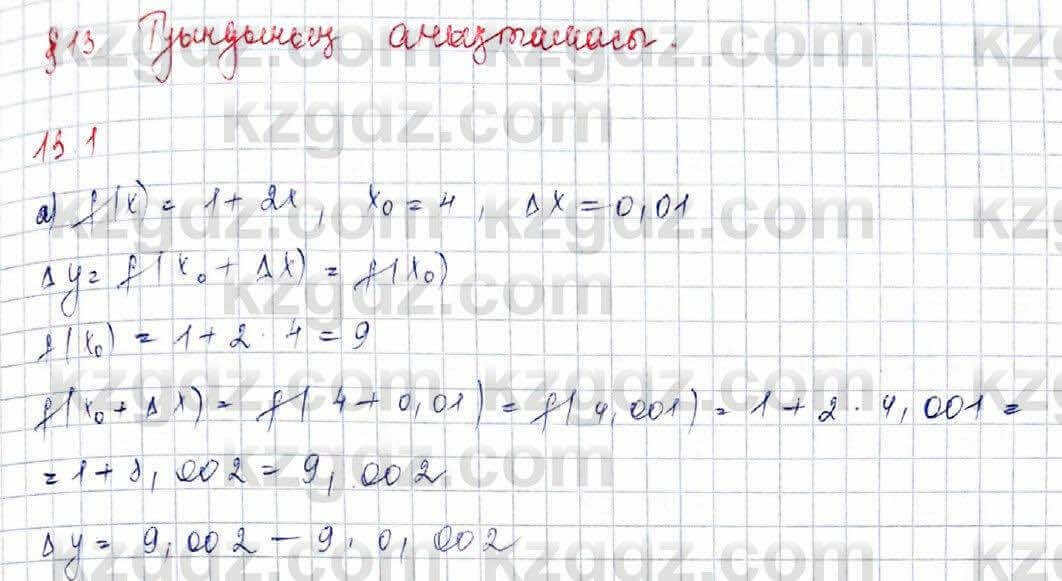 §13 Туындының анықтамасы.
13.1
a) f(x) = 1 + 2x, x₀ = 4, Δx = 0,01
Δy = f(x₀ + Δx) = f(x₀)
f(x₀) = 1 + 2 · 4 = 9
f(x₀ + Δx) = f(4 + 0,01) = f(4,001) = 1 + 2 · 4,001 =
= 1 + 8,002 = 9,002
Δy = 9,002 - 9. 0,002
kzgdz.com